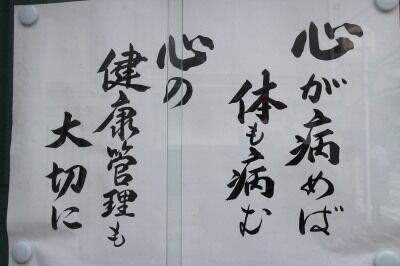 心が病めば
体も病む
心の
健康管理も
大切に